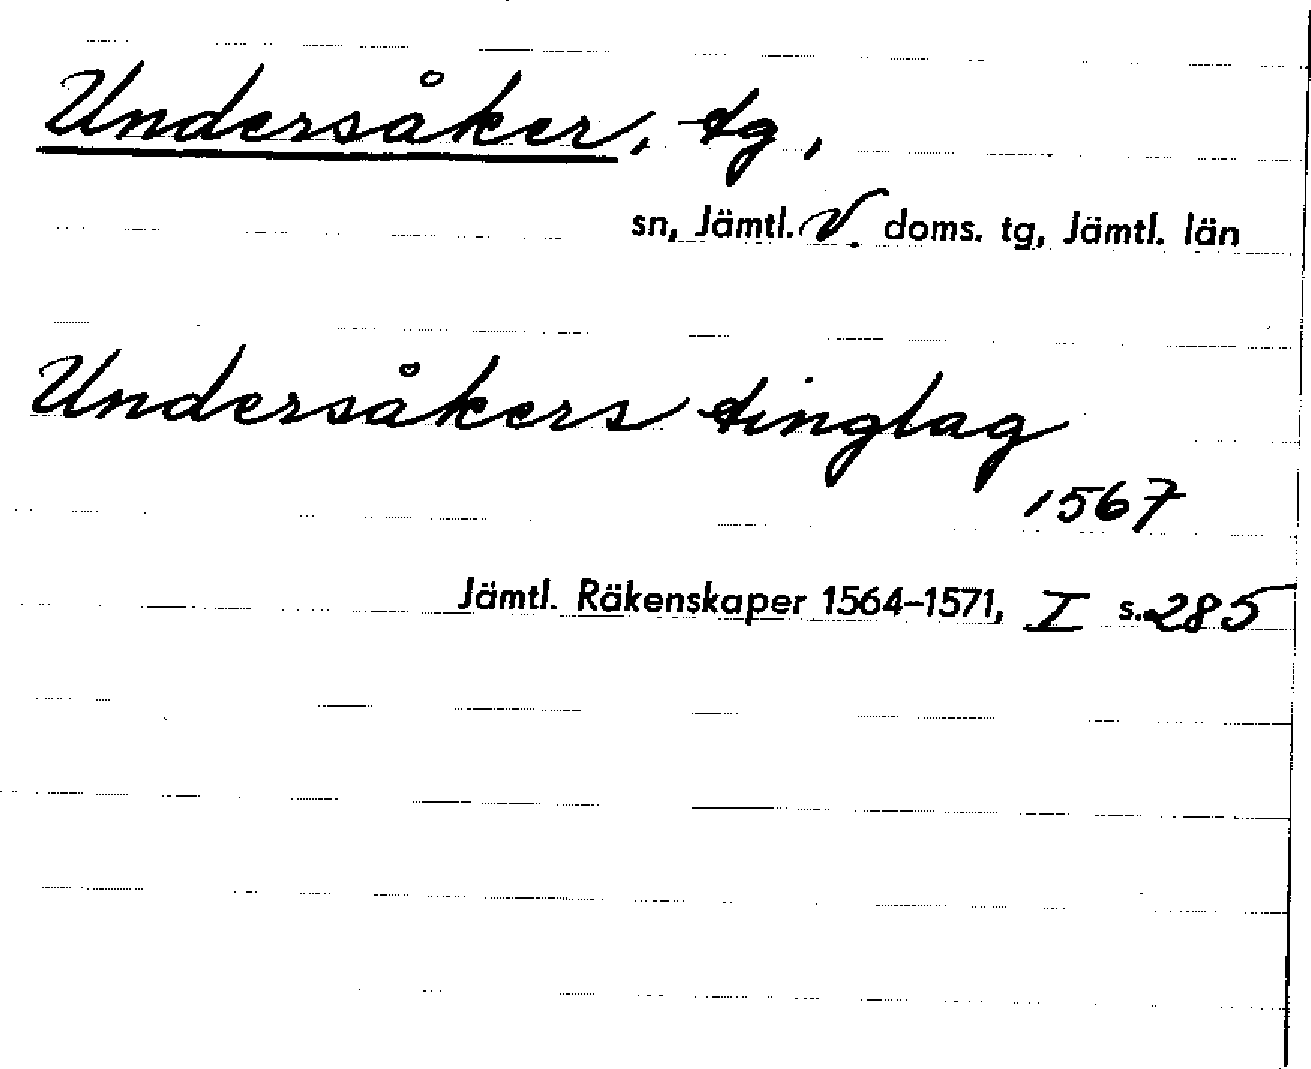 Undersåker, tg,
sn, Jämtl. V. doms. tg, Jämtl. län
Undersåkers tinglag
1567
Jämtl. Räkenskaper 1564–1571, I s. 285